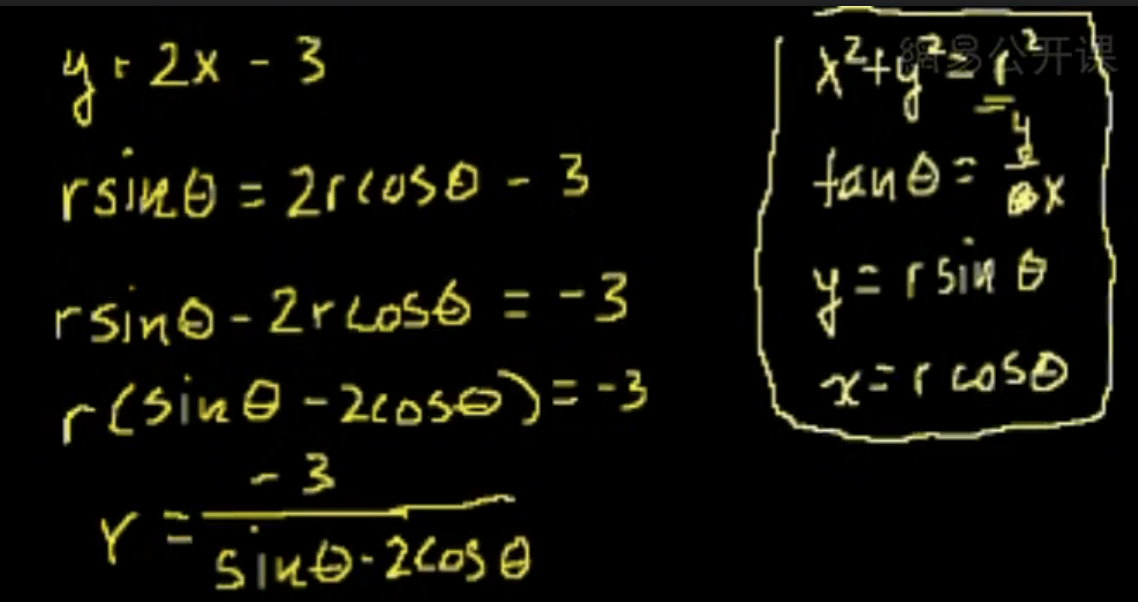 y = 2x - 3
rsinθ = 2rcosθ - 3
rsinθ - 2rcosθ = -3
r(sinθ - 2cosθ) = -3
r = -3 / sinθ - 2cosθ
網易公开课
x² + y² = r²
tanθ = y / x
y = r sinθ
x = r cosθ